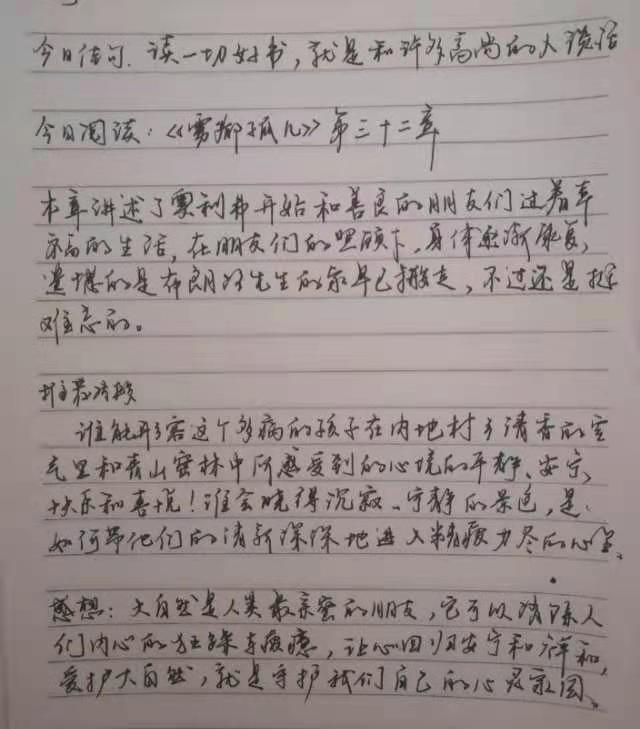 今日佳句. 读一切好书，就是和许多高尚的人谈话
今日阅读：《雾都孤儿》第三十二章
本章讲述了奥利弗开始和善良的朋友们过着幸
福的生活，在朋友们的照顾下，身体逐渐康复，
遗憾的是布朗洛先生的家早已搬走，不过还是挺
难忘的。
谁能形容这个多病的孩子在内地村乡清香的空
气里和青山密林中所感受到的心境的平静、安宁、
快乐和喜悦！谁会晓得沉寂、宁静的景色，是
如何带他们的清新深深地进入精疲力尽的心里。
感想：大自然是人类最亲密的朋友，它可以消除人
们内心的狂躁与疲惫，让心回归安宁和祥和，
爱护大自然，就是守护我们自己的心灵家园。